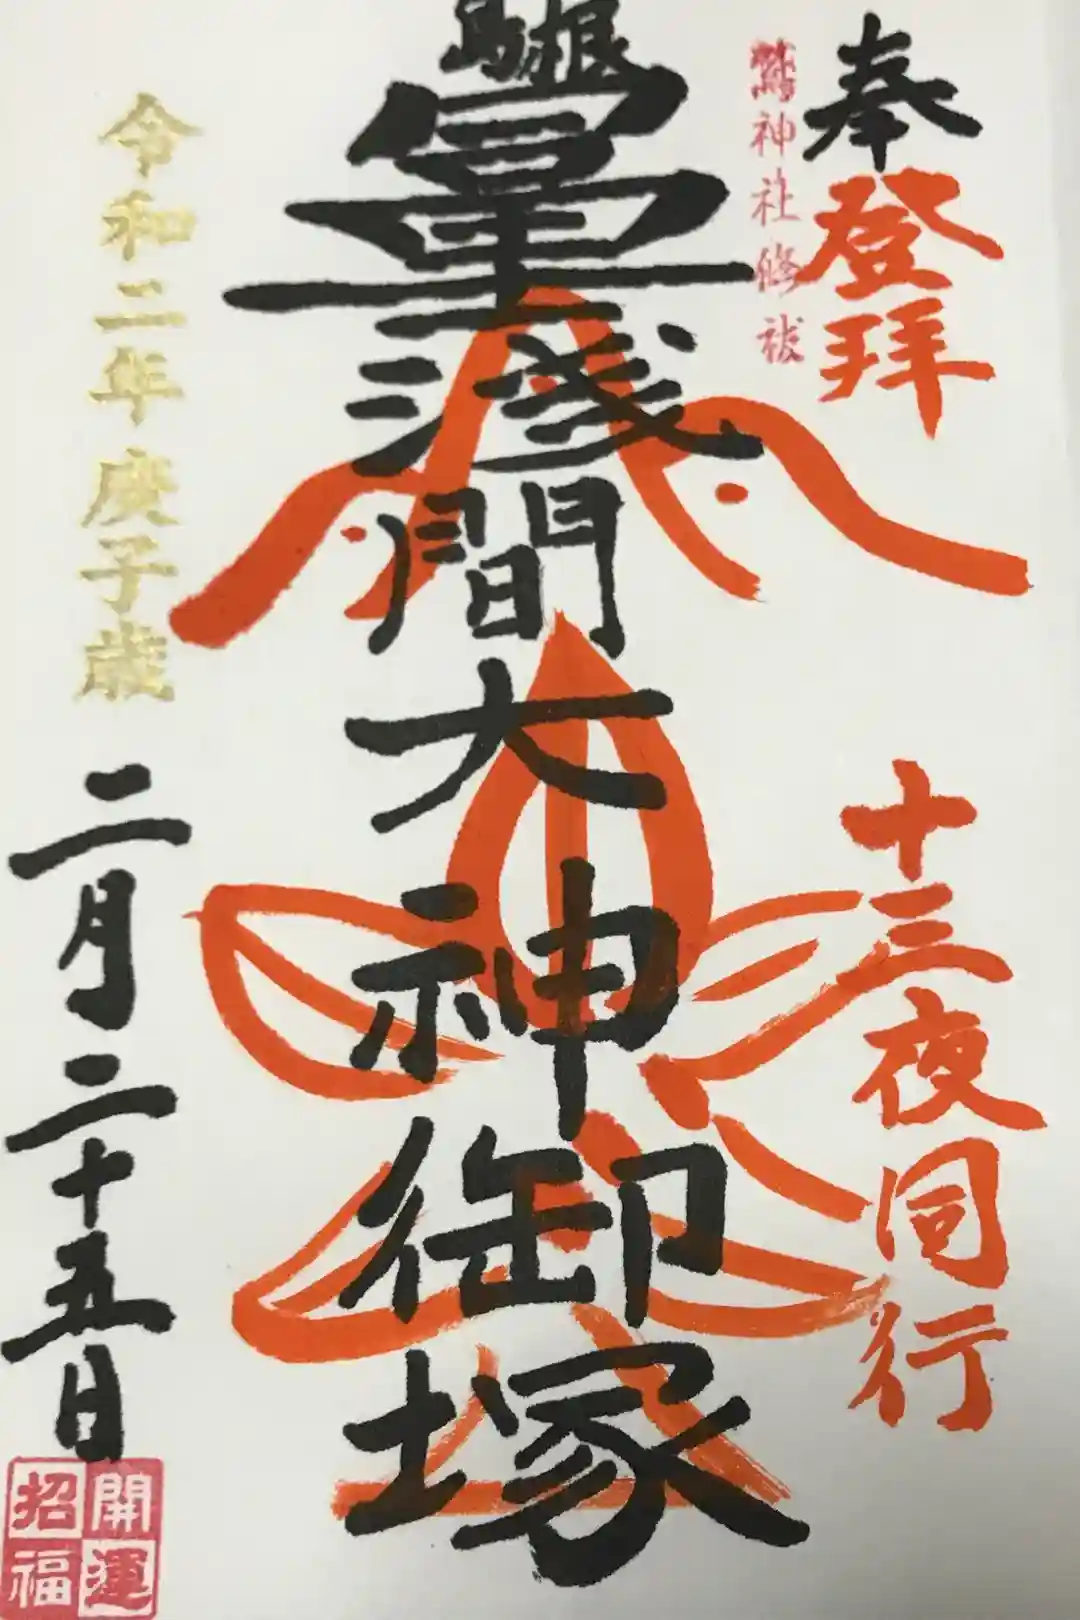 奉
登拝
鷲神社修祓
十三夜同行
駒根
浅間大神御塚
令和二年庚子歳
二月二十五日
開運
招福